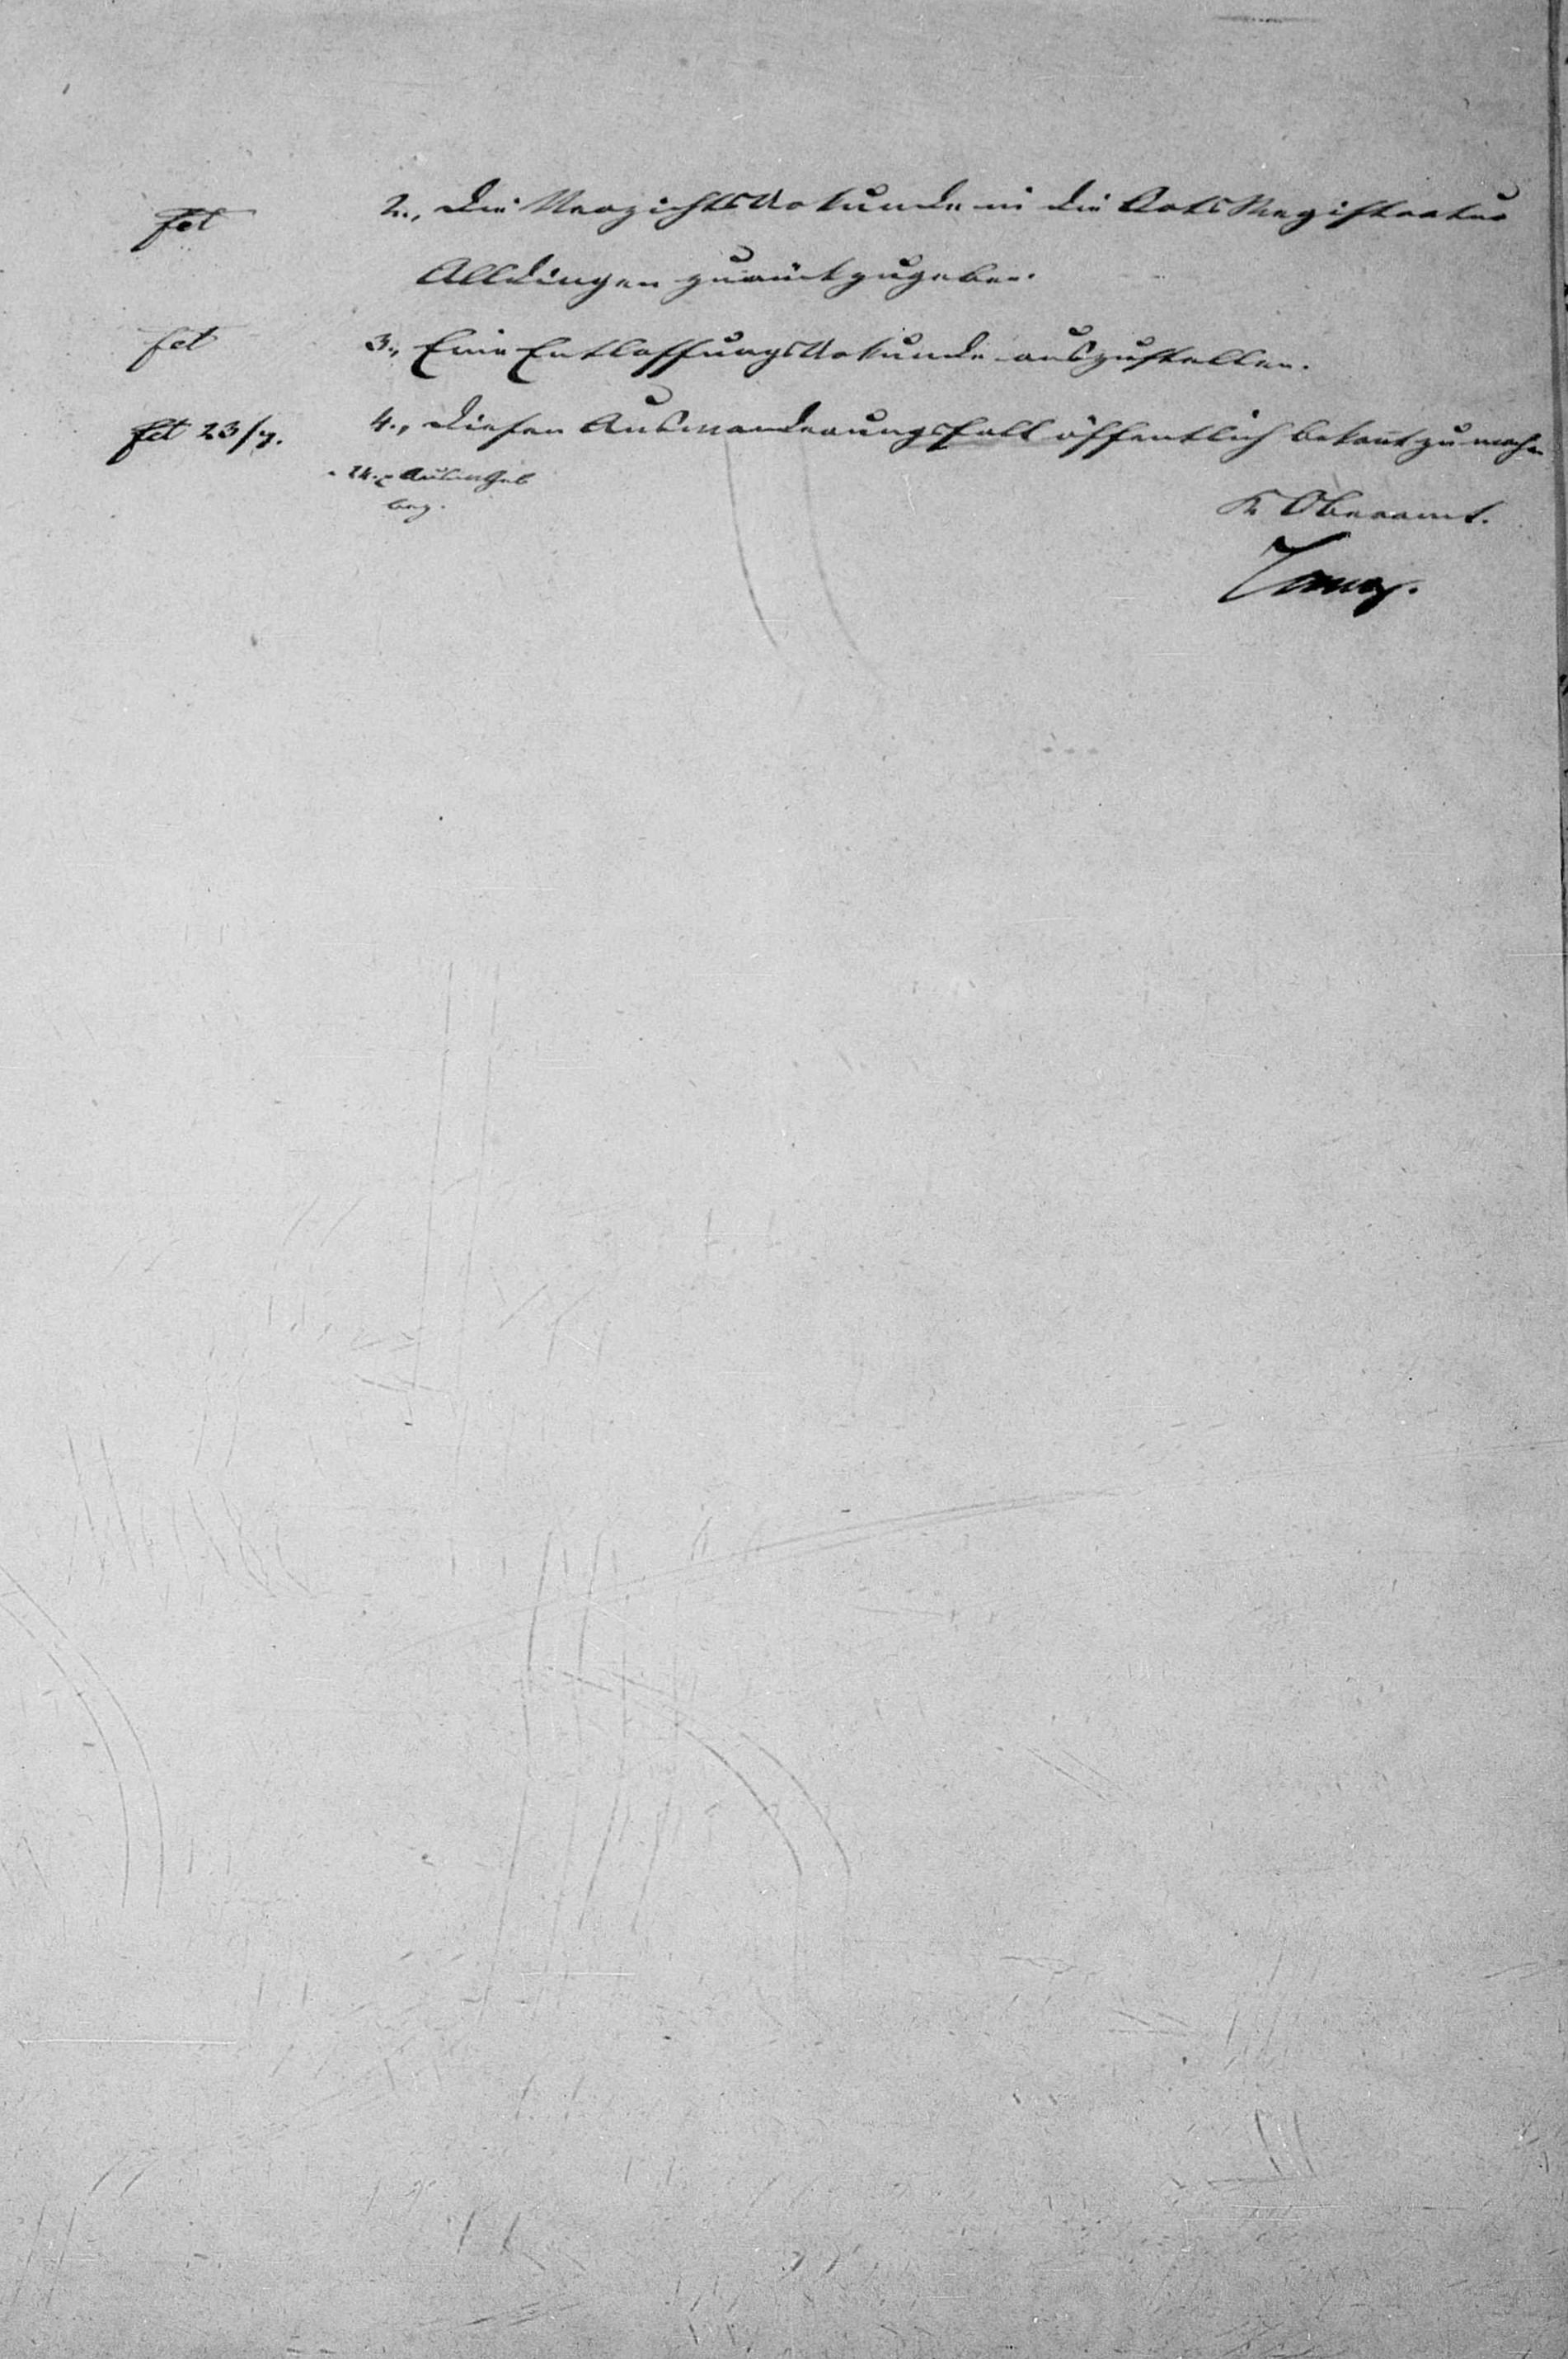 fct 2., die VerzichtsUrkunde in die Orts Registratur
Alldingen zurückzugeben.
fct 3., Eine EntlassungsUrkunde auszustellen.
fct 23/7. 4., diesen Auswanderungsfall öffentlich bekannt zu machen
24.
K Oberamt.